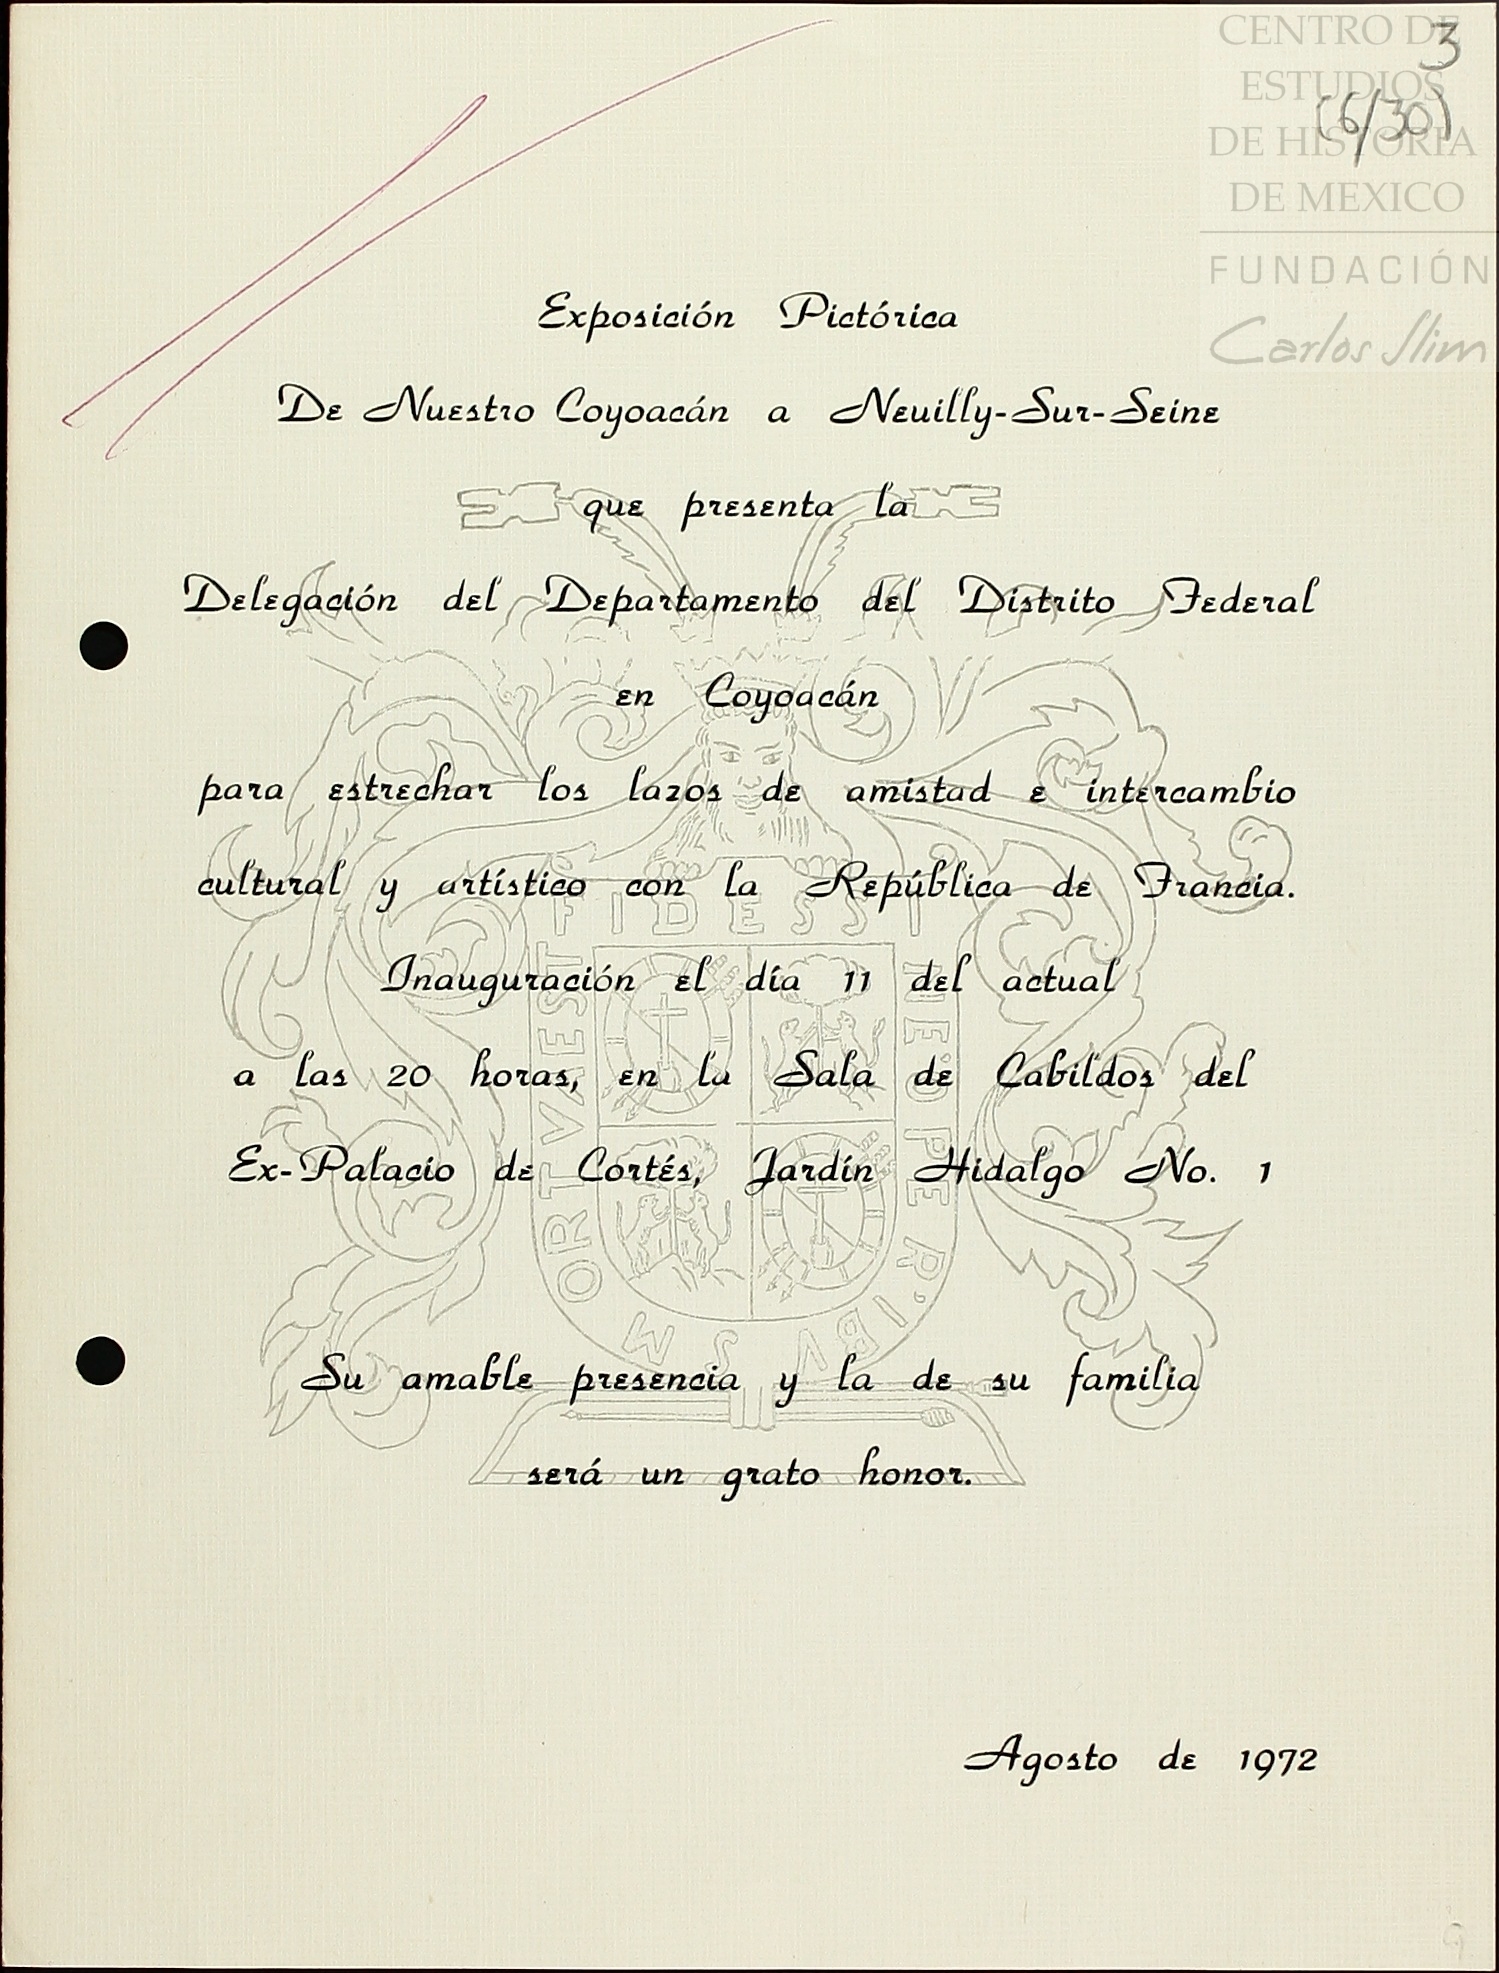 CENTRO DE
ESTUDIOS
DE HISTORIA
DE MEXICO
FUNDACIÓN
Carlos Slim
3
(6/30)
Exposición Pictórica
De Nuestro Coyoacán a Neuilly-Sur-Seine
que presenta la
Delegación del Departamento del Distrito Federal
en Coyoacán
para estrechar los lazos de amistad e intercambio
cultural y artístico con la República de Francia.
Inauguración el día 11 del actual
a las 20 horas, en la Sala de Cabildos del
Ex-Palacio de Cortés, Jardín Hidalgo No. 1
Su amable presencia y la de su familia
será un grato honor.
Agosto de 1972
FIDESSI
NEOPE R'IBV
S M
ORTVAEST